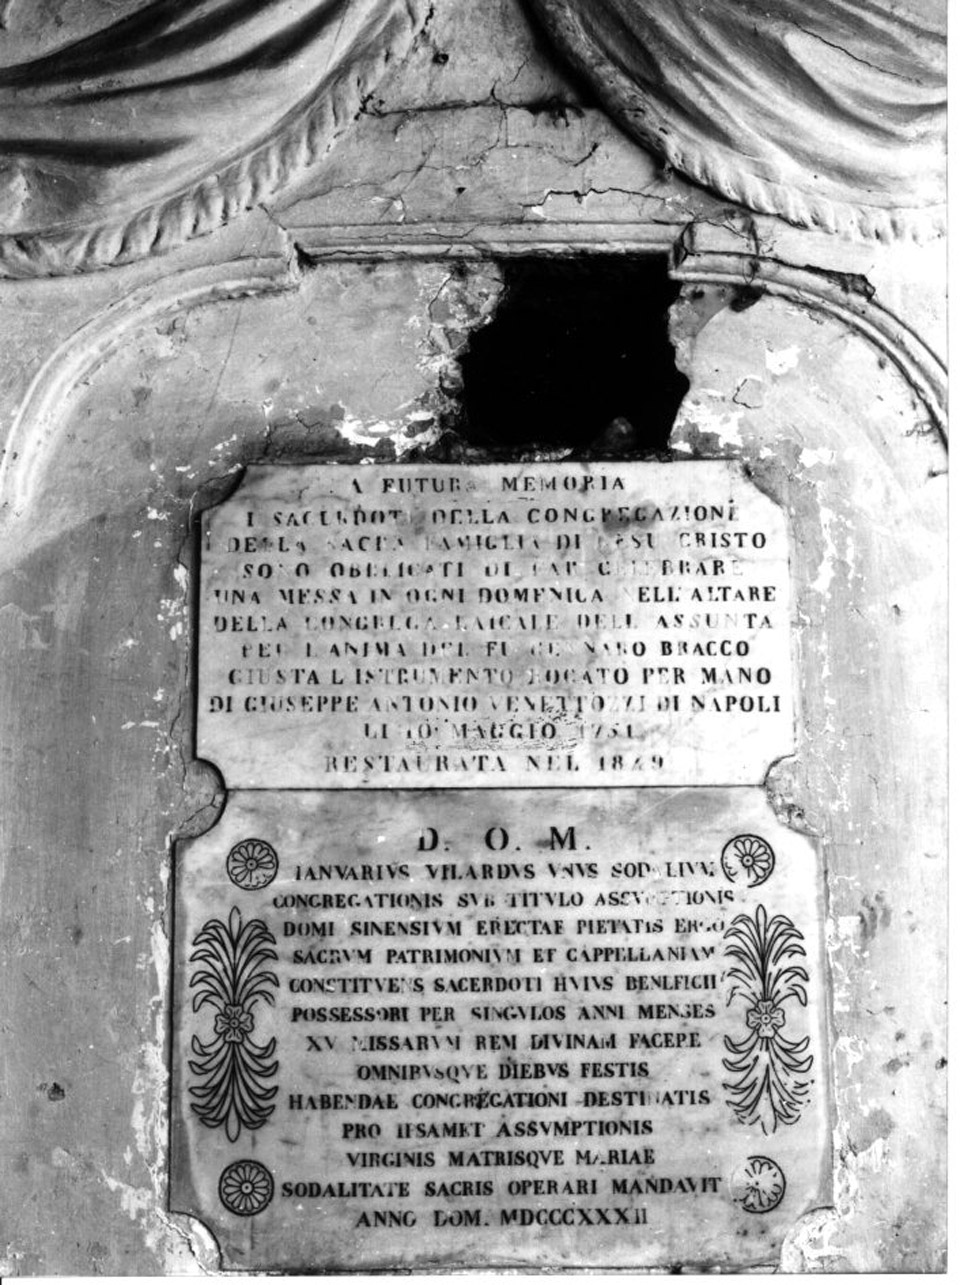 A FUTURA MEMORIA
I SACERDOTI DELLA CONGREGAZIONE
DELLA SACRA FAMIGLIA DI GESU CRISTO
SONO OBBLIGATI DI FAR CELEBRARE
UNA MESSA IN OGNI DOMENICA NELL'ALTARE
DELLA CONGREGA LAICALE DELL ASSUNTA
PER L ANIMA DEL FU GENNARO BRACCO
GIUSTA L ISTRUMENTO ROGATO PER MANO
DI GIUSEPPE ANTONIO VENETTOZZI DI NAPOLI
LI 10 MAGGIO 1751
RESTAURATA NEL 1849
D. O. M.
IANVARIVS VILARDVS VNVS SODALIVM
CONGREGATIONIS SVB TITVLO ASSVMPTIONIS
DOMI SINENSIVM ERECTAE PIETATIS ERGO
SACRVM PATRIMONIVM ET CAPPELLANIAM
CONSTITVENS SACERDOTI HVIVS BENEFICII
POSSESSORI PER SINGVLOS ANNI MENSES
XV MISSARVM REM DIVINAM FACERE
OMNIBVSQVE DIEBVS FESTIS
HABENDAE CONGREGATIONI DESTINATIS
PRO IISAMET ASSVMPTIONIS
VIRGINIS MATRISQVE MARIAE
SODALITATE SACRIS OPERARI MANDAVIT
ANNO DOM. MDCCCXXXII